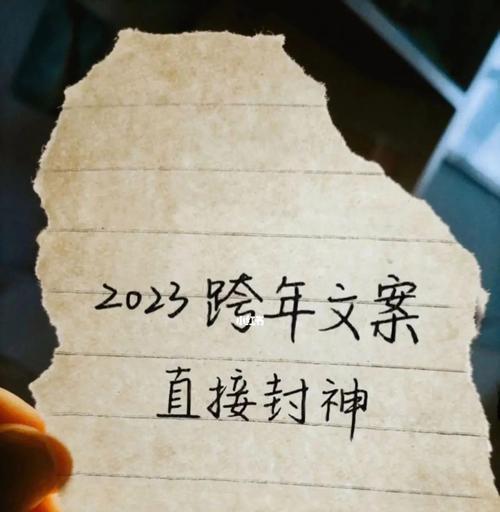 2023跨年文案
小红书
直接封神